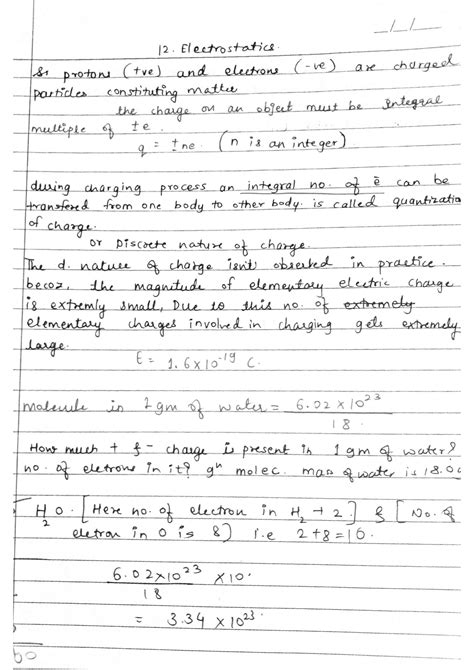 __/__/__
12. Electrostatics.
protons (+ve) and electrons (-ve) are charged
particles constituting matter
the charge on an object must be integral
multiple of ±e
q = ±ne. (n is an integer)
during charging process an integral no. of ē can be
transfered from one body to other body. is called quantizatio
of charge.
or Discrete nature of charge.
The d. nature of charge isn't observed in practice.
becoz, the magnitude of elementary electric charge
is extremly small, Due to this no. of extremely
elementary charges involved in charging gets extremely
large.
E = 1.6×10⁻¹⁹ C.
molecule in 1gm of water = 6.02 × 10²³
18.
How much + & - charge is present in 1 gm of water?
no. of eletrons in it? gⁿ molec. mas of water is 18.0
H₂O. [Here no. of electron in H₂ → 2.] & [No. of
eletron in O is 8] i.e 2+8=10.
6.02×10²³ ×10.
18
= 3.34 × 10²³.